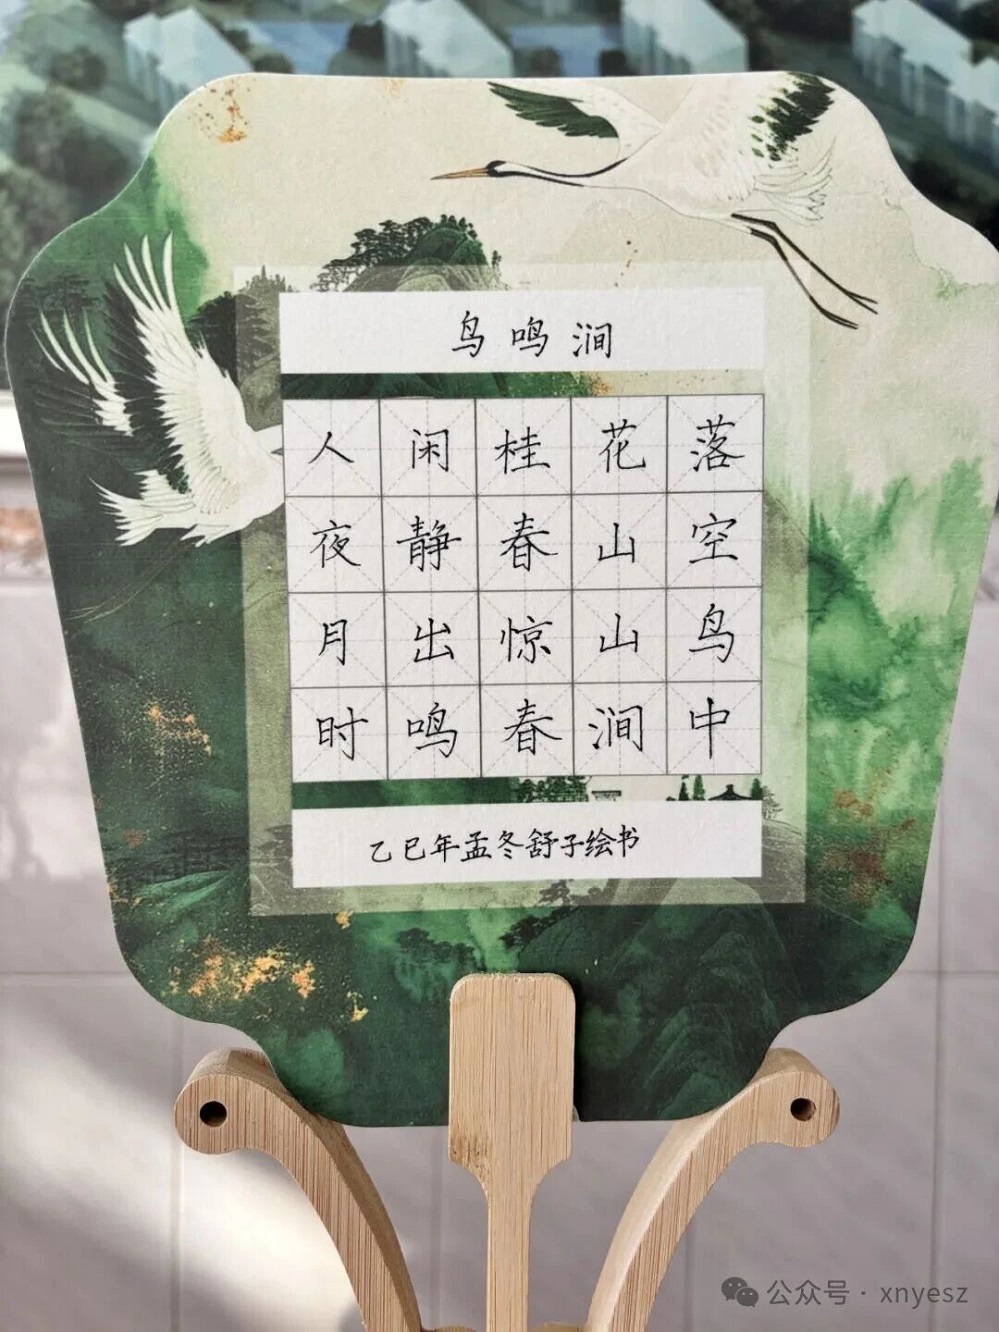 鸟鸣涧
人闲桂花落
夜静春山空
月出惊山鸟
时鸣春涧中
乙巳年孟冬舒子绘书
公众号·xnyesz